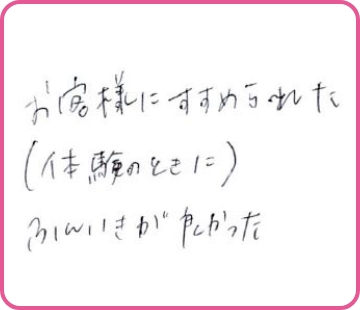 お客様にすすめられた
(体験のときに)
ふんいきが良かった